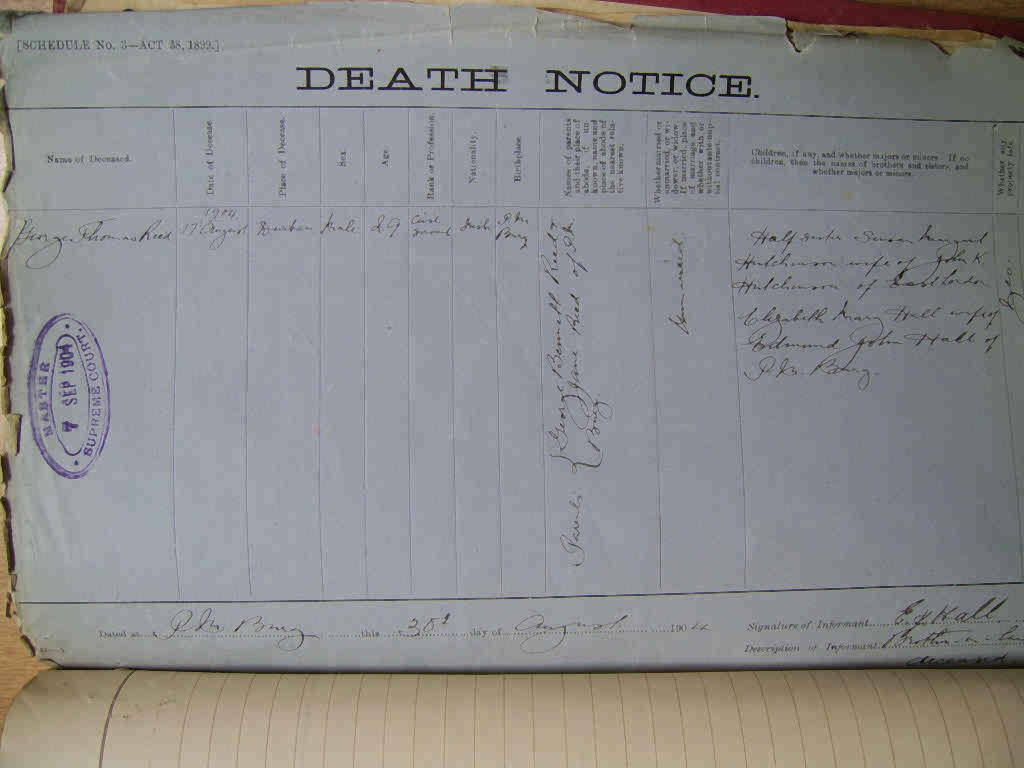 [SCHEDULE No. 3—ACT 38, 1899.]
DEATH NOTICE.
Name of Deceased.
Date of Decease.
Place of Decease.
Sex.
Age.
Rank or Profession.
Nationality.
Birthplace.
Names of parents
and their place of
abode, if un-
known, names and
places of abode of
the nearest rela-
tive known.
Whether married or
unmarried, or wi-
dower or widow.
If married, place
of marriage and
whether with or
without ante-nup-
tial contract.
Children, if any, and whether majors or minors. If no
children, then the names of brothers and sisters, and
whether majors or minors.
Whether any
property left.
George Thomas Reed
1904
17 August
Durban
Male
29
Civil
Irish
P. M.
Burg
Parents { George Reed &
Jane Reed of P. M.
Burg
Unmarried
Half sister Susan Margaret
Hutchinson wife of John K.
Hutchinson of East London
Elizabeth Mary Hall wife of
Edmund John Hall of
P. M. Burg.
Yes.
MASTER
7 SEP 1904
SUPREME COURT.
Dated at P. M. Burg this 30th day of August 1904
Signature of Informant E J Hall
Description of Informant Brother in law
deceased